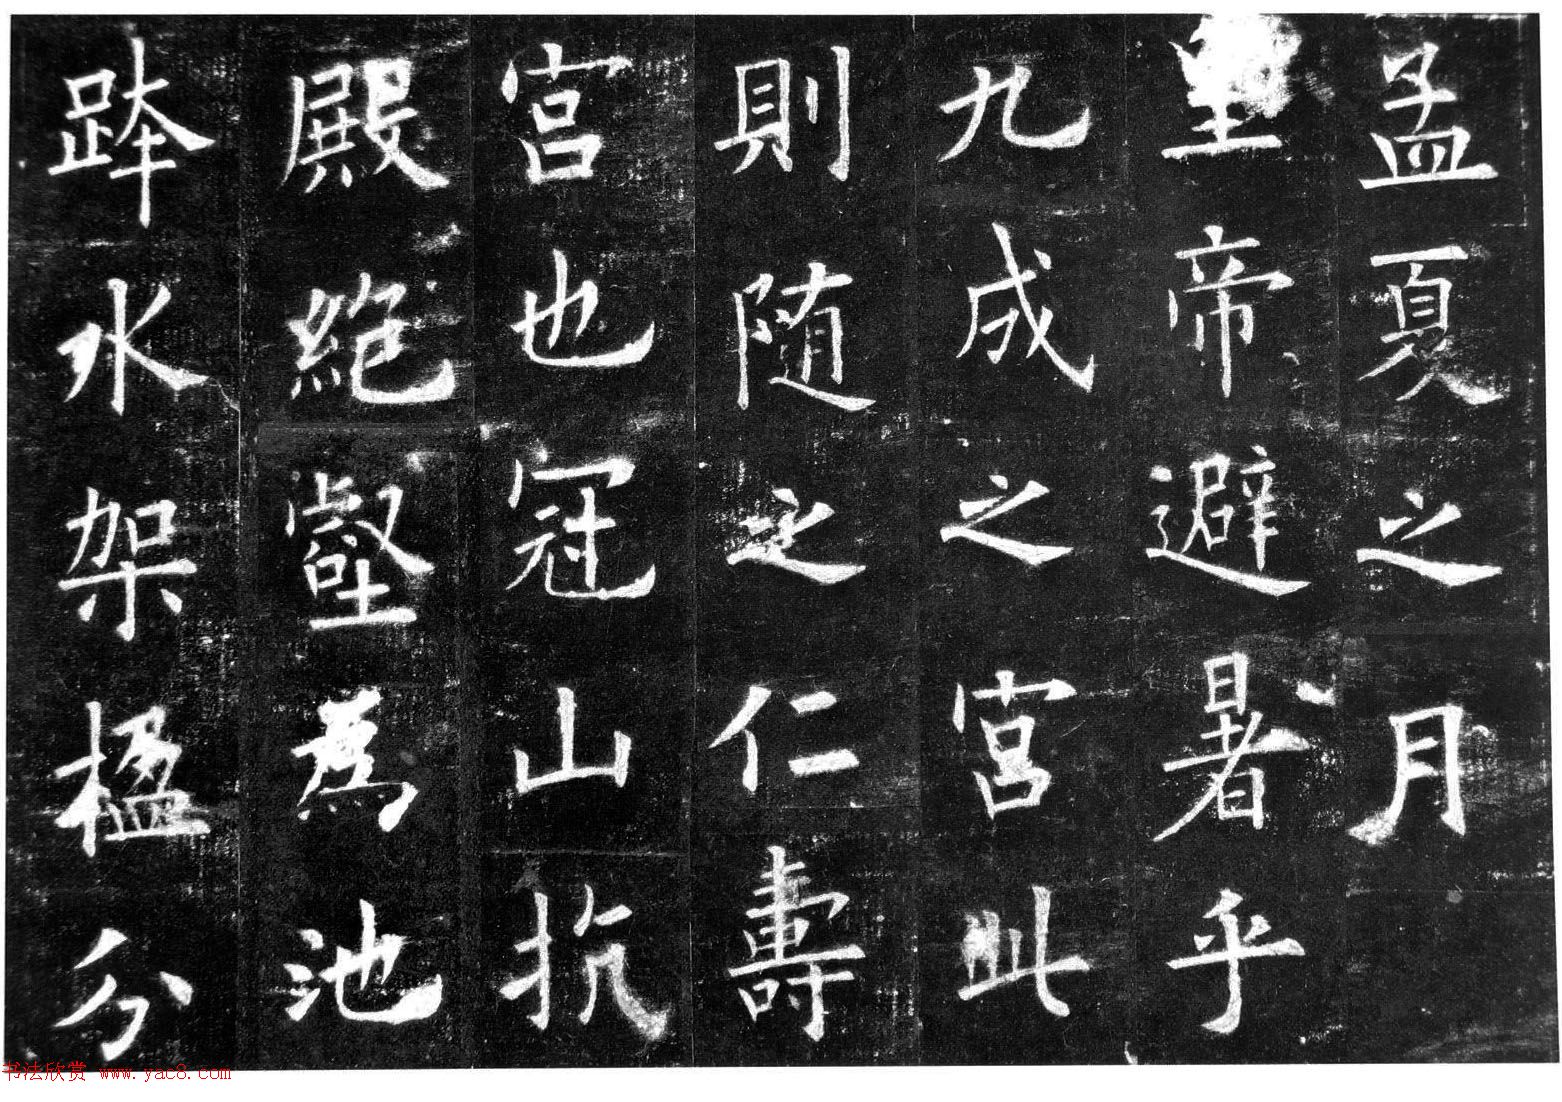 孟夏之月
皇帝避暑乎
九成之宮此
則隨之仁壽
宮也冠山抗
殿絕壑為池
跨水架楹分
书法欣赏 www.yac8.com